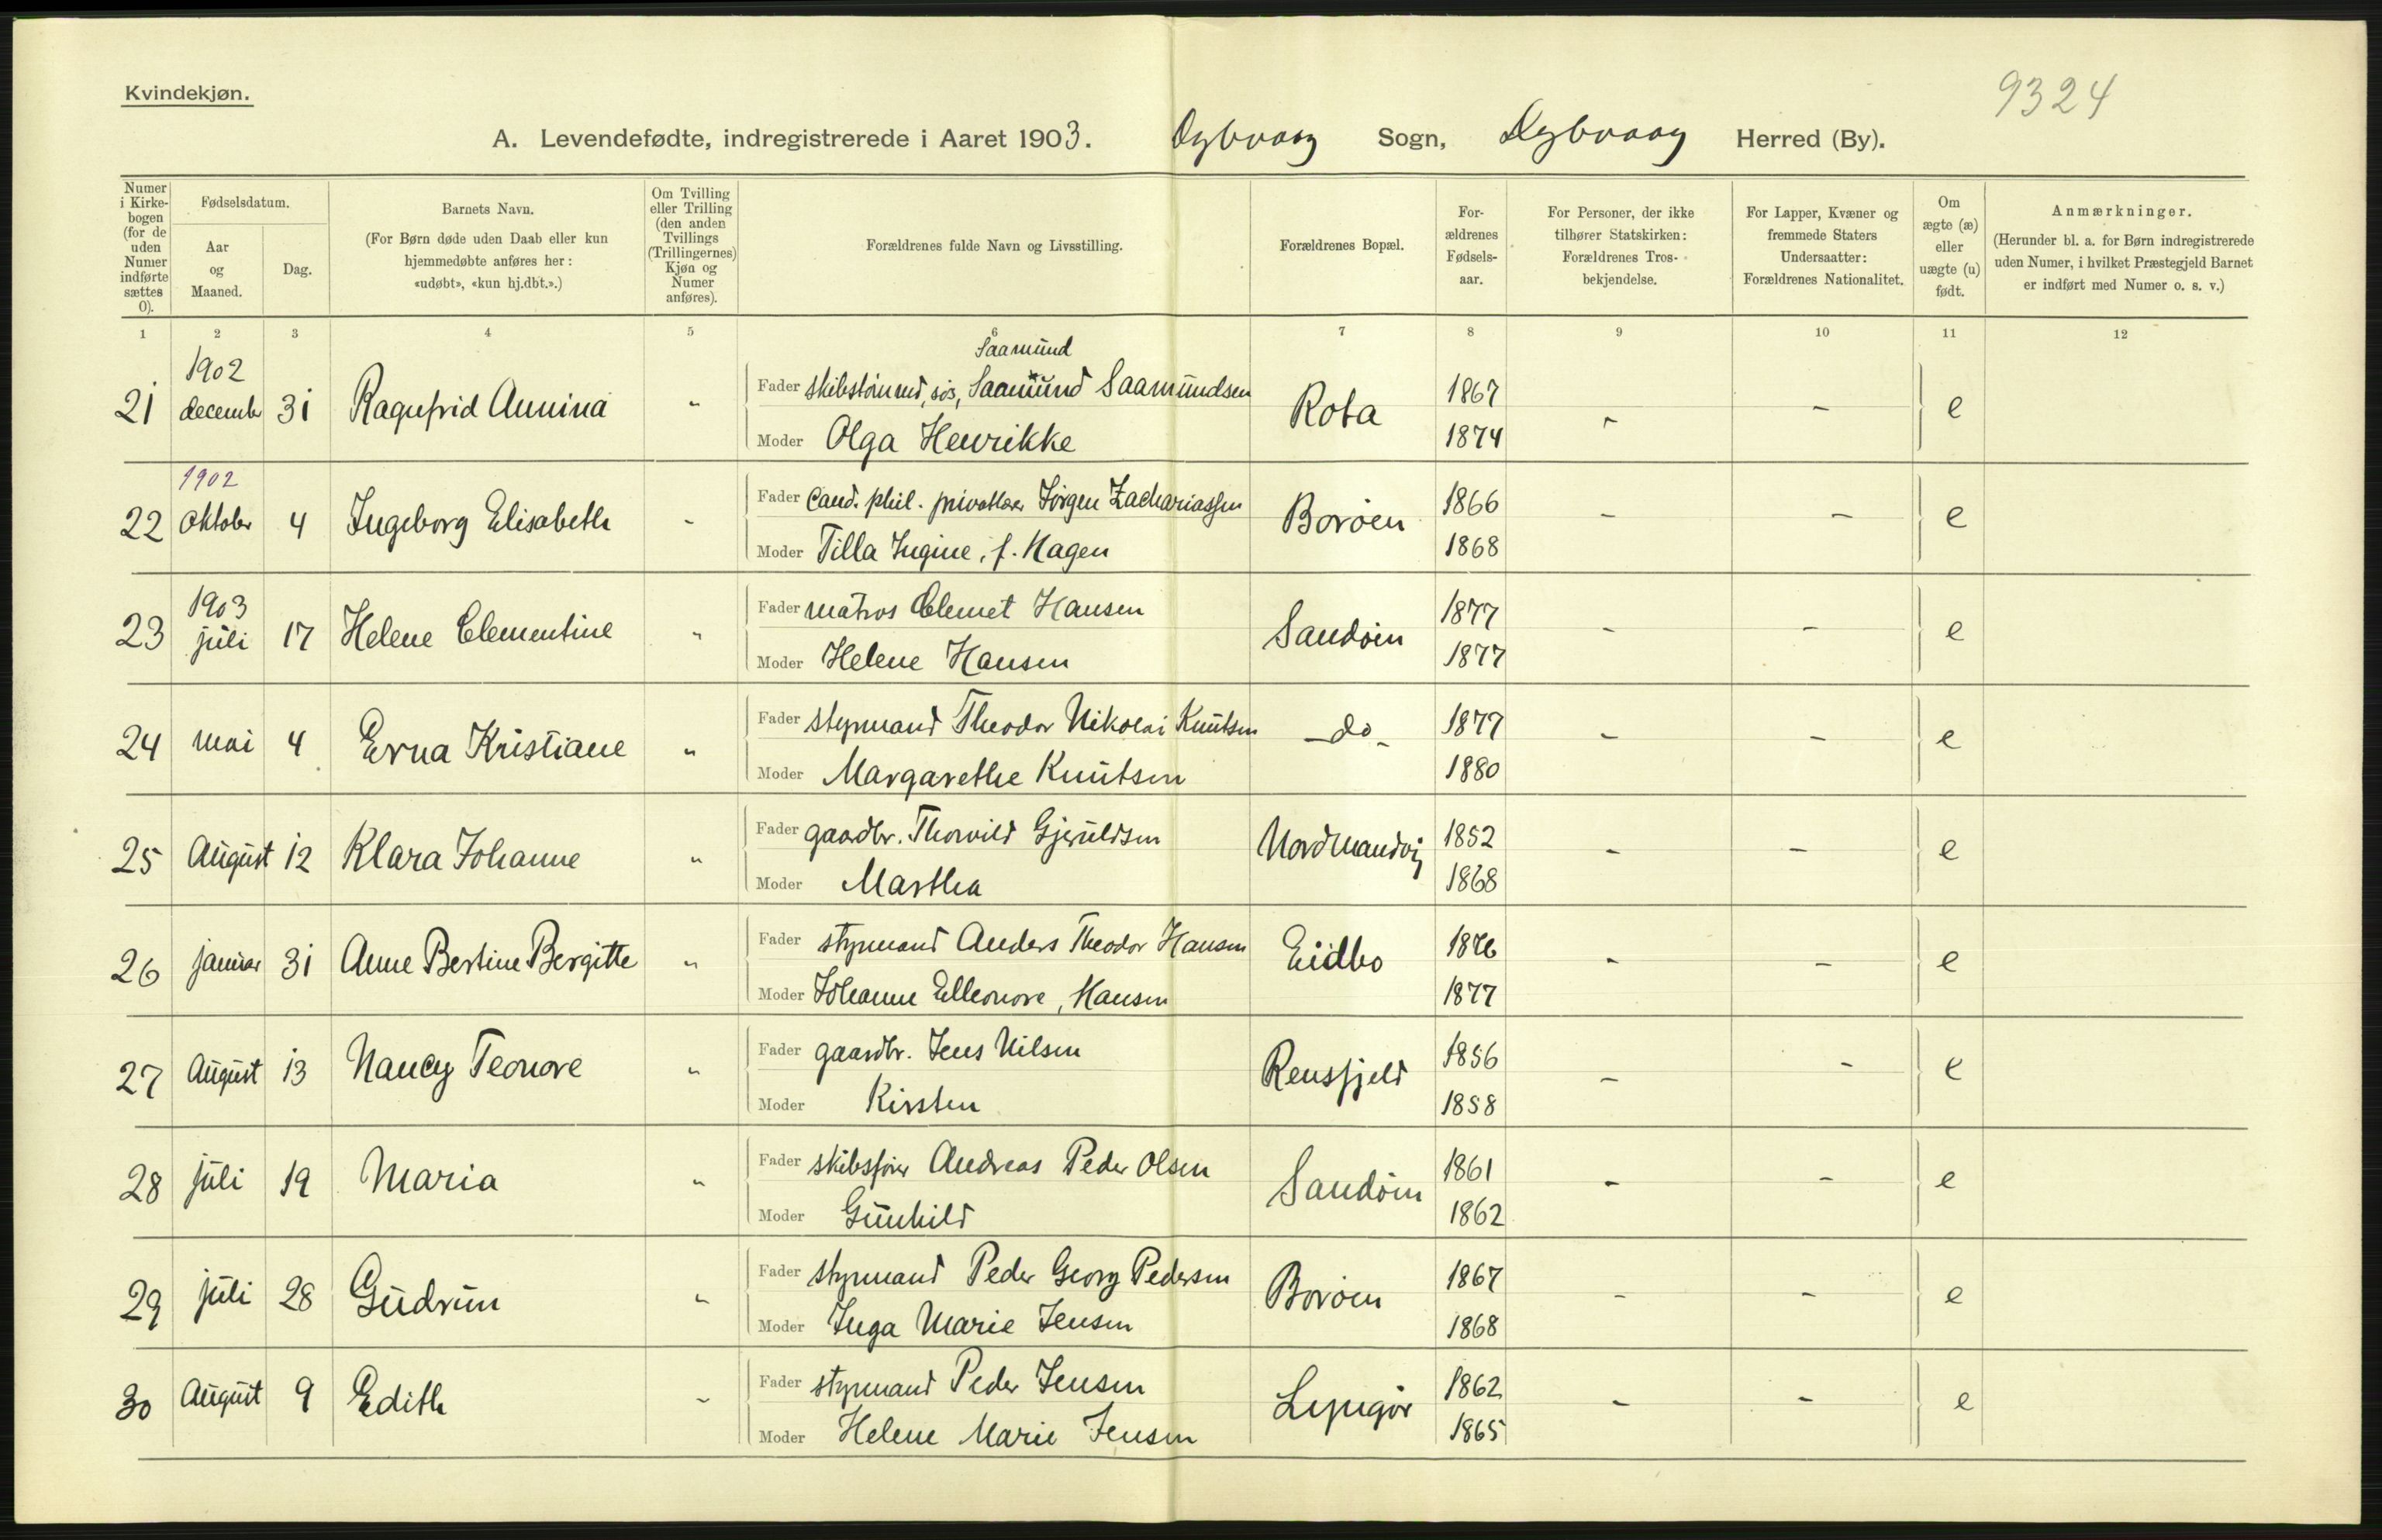 Kvindekjøn.
9324
A. Levendefødte, indregistrerede i Aaret 1903. Dybvaag Sogn, Dybvaag Herred (By).
Numer i Kirkebogen (for de uden Numer indførte sættes 0).
Fødselsdatum.
Aar og Maaned.
Dag.
Barnets Navn.
(For Børn døde uden Daab eller kun hjemmedøbte anføres her: «udøbt», «kun hj.dbt.».)
Om Tvilling eller Trilling (den anden Tvillings (Trillingernes) Kjøn og Numer anføres).
Forældrenes fulde Navn og Livsstilling.
Forældrenes Bopæl.
Forældrenes Fødselsaar.
For Personer, der ikke tilhører Statskirken: Forældrenes Trosbekjendelse.
For Lapper, Kvæner og fremmede Staters Undersaatter: Forældrenes Nationalitet.
Om ægte (æ) eller uægte (u) født.
Anmærkninger.
(Herunder bl. a. for Børn indregistrerede uden Numer, i hvilket Præstegjeld Barnet er indført med Numer o. s. v.)
1 2 3 4 5 6 7 8 9 10 11 12
21 1902 december 31 Ragnfrid Annina " Fader Saamund Saamund Saamundsen Rota 1867 - - e
Moder Olga Henrikke 1874
22 1902 Oktober 4 Ingeborg Elisabeth - Fader Cand. phil. privatlærer Jörgen Zachariassen Borøen 1866 - - e
Moder Tilla Ingine, f. Hagen 1868
23 1903 juli 17 Helene Clementine " Fader matros Clemet Hansen Sandøen 1877 - - e
Moder Helene Hansen 1877
24 mai 4 Erna Kristiane " Fader styrmand Theodor Nikolai Knutsen -do- 1877 - - e
Moder Margarethe Knutsen 1880
25 August 12 Klara Johanne " Fader gaardbr. Thorvild Gjeruldsen Nordmandvig 1852 - - e
Moder Martha 1868
26 januar 31 Anne Bertine Bergitte " Fader styrmand Anders Theodor Hansen Eidbo 1876 - - e
Moder Johanne Elleonore, Hansen 1877
27 August 13 Nancy Teonore " Fader gaardbr. Jens Nilsen Rensfjeld 1856 - - e
Moder Kirsten 1858
28 juli 19 Maria " Fader skibsfører Andreas Peder Olsen Sandøen 1861 - - e
Moder Gunhild 1862
29 juli 28 Gudrun " Fader styrmand Peder Georg Pedersen Borøen 1867 - - e
Moder Inga Marie Jensen 1868
30 August 9 Edith - Fader styrmand Peder Jensen Lyngør 1862 - - e
Moder Helene Marie Jensen 1865